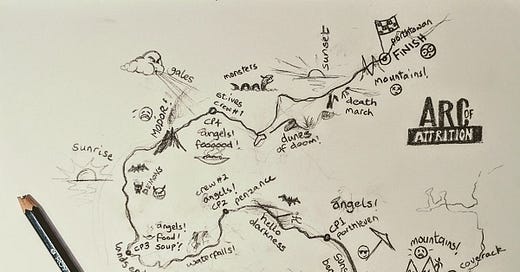 sunset
porthtowan
FINISH
gales
monsters
mountains!
MORDOR!
st.ives
crew#1
CP4
angels!
foooood!
death
march
dunes
of doom!
ARC OF
ATTRITION
sunrise
DEMONS
crew #2
angels!
CP2
penzance
hello
darkness
angels!
CP1
porthleven
angels!
food!
soup?
CP3
waterfalls!
mountains!
coverack